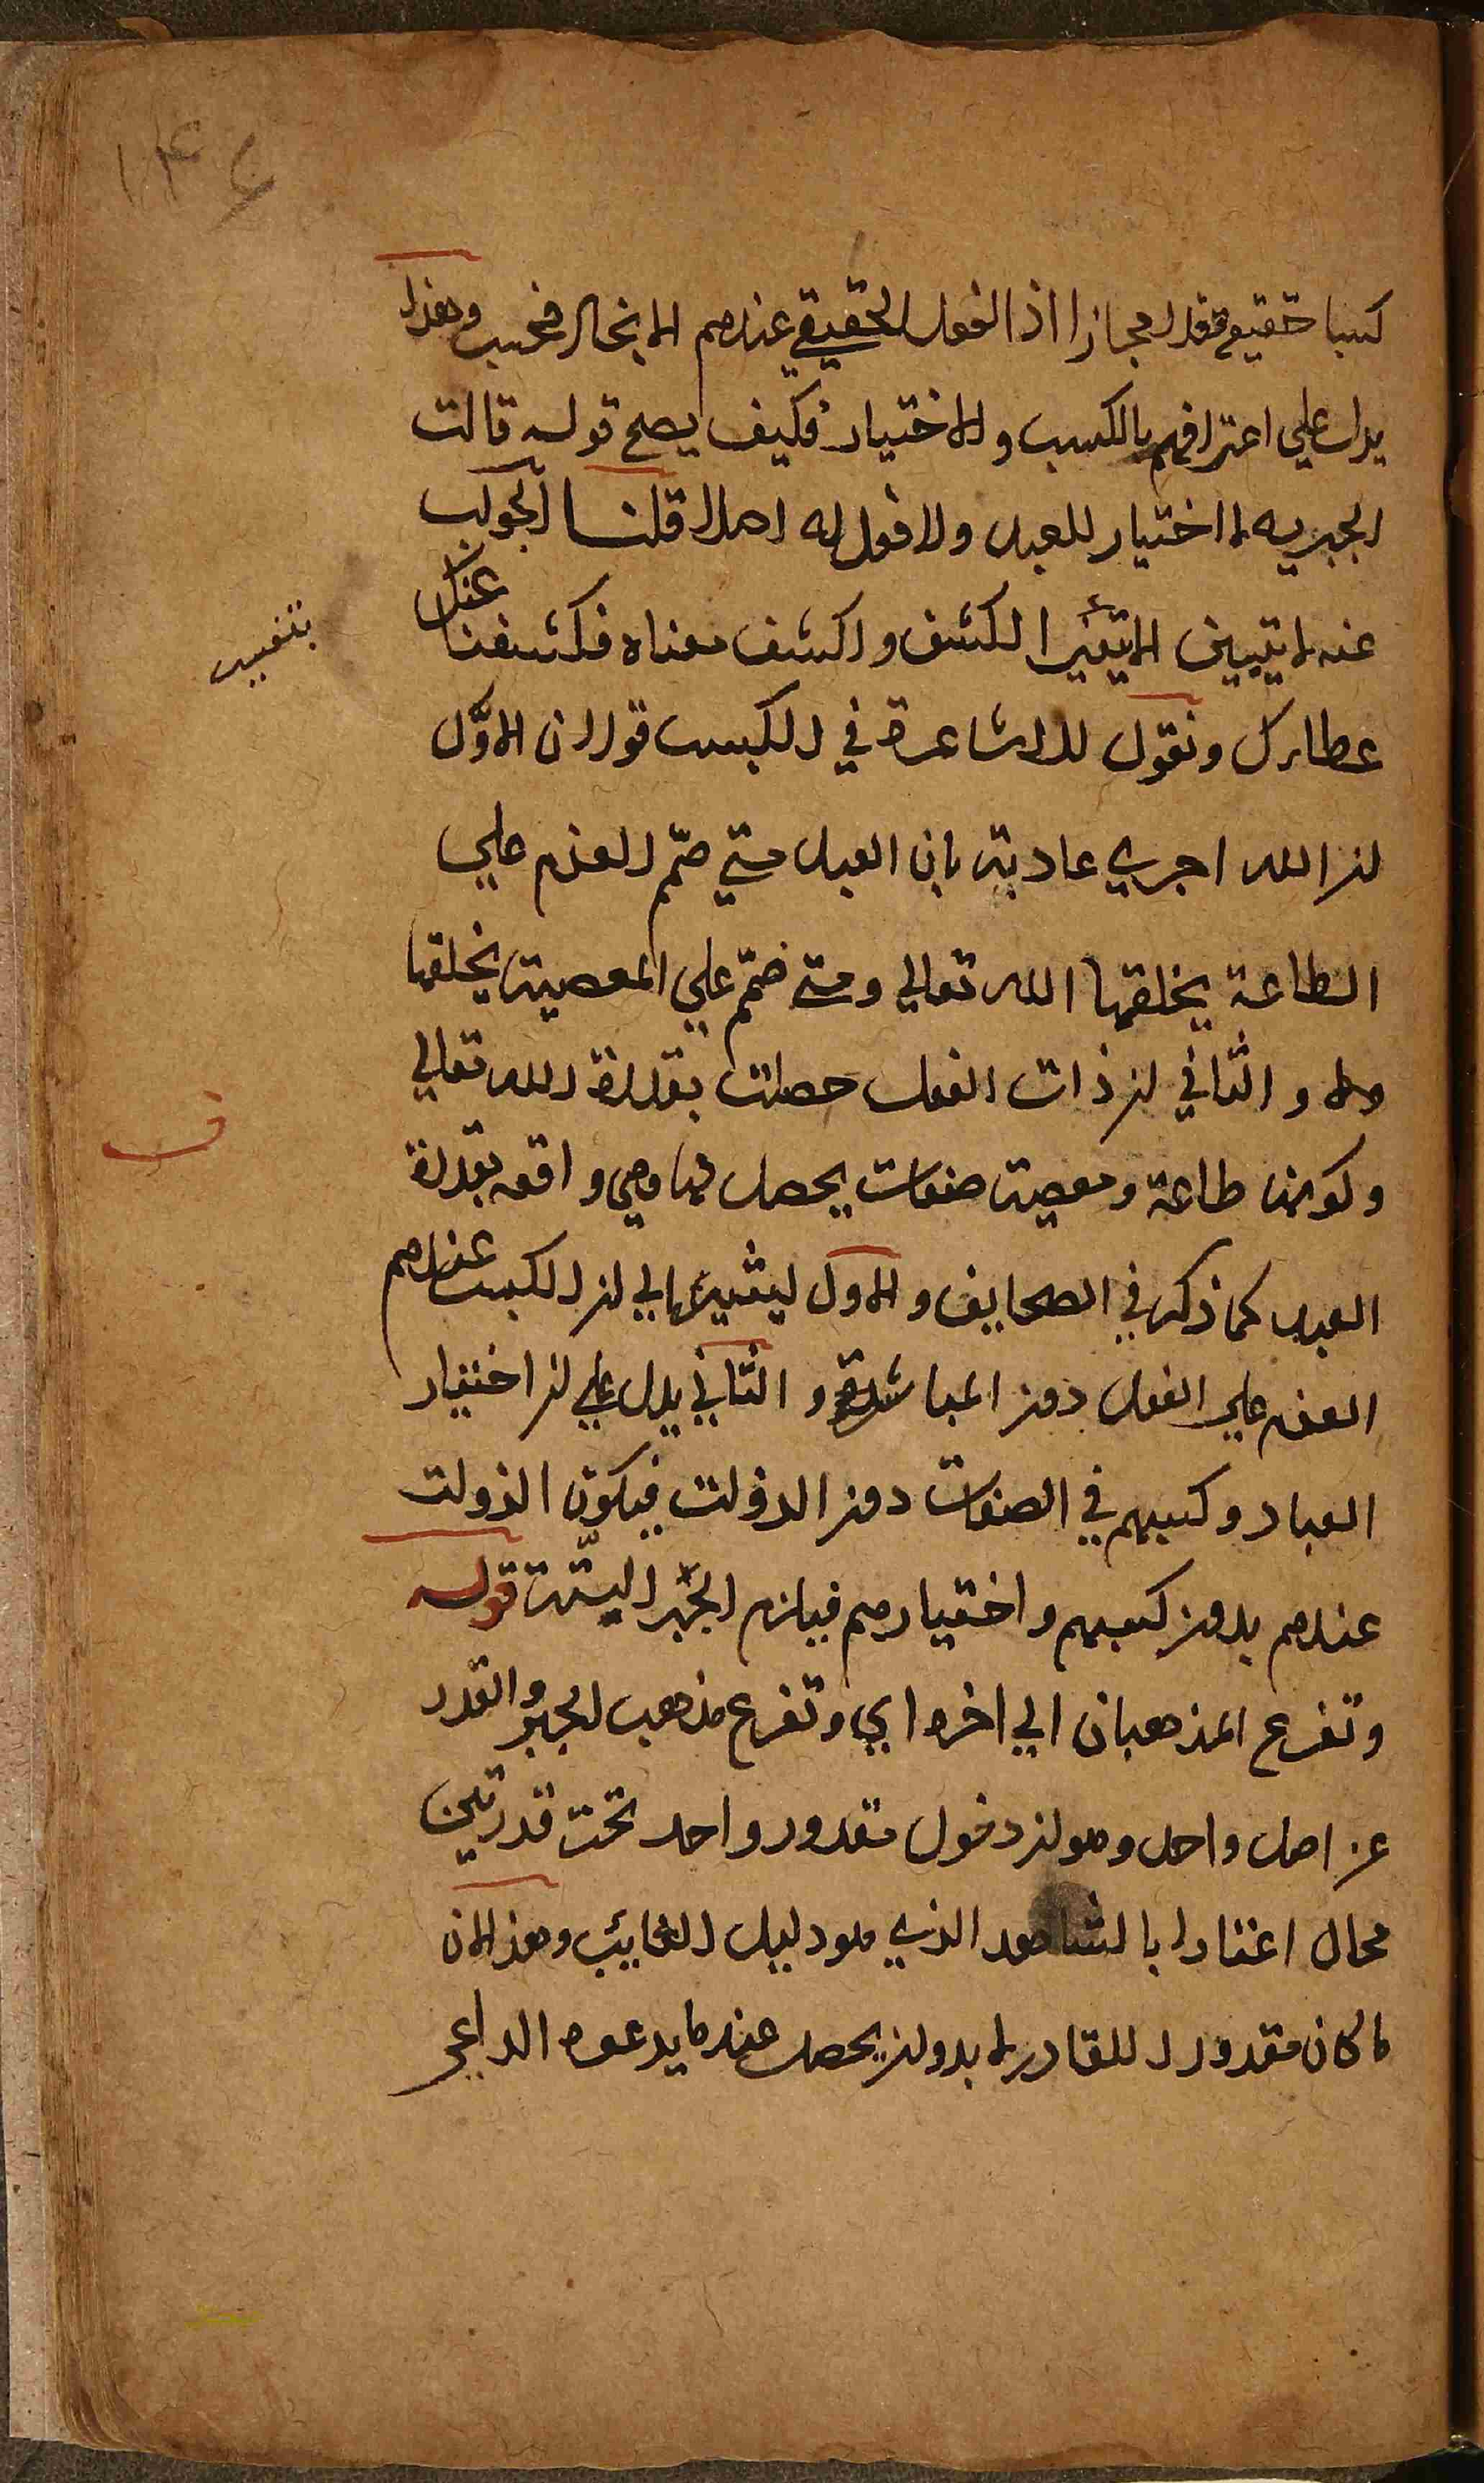 ١٣٤
كسبا حقيقة وفعلا مجازا اذ الفعل الحقيقي عندهم الايجاد فحسب وهذا
يدل علي اعترافهم بالكسب والاختيار فكيف يصح قوله قالت
الجبريه لا اختيار للعبد ولا فعل له اصلا قلنا الجواب
عنه لا يتبين الا بتفسير الكسب وكشف معناه فكشفنا عنك
غطاءك ونقول للاشاعرة في الكسب قولان الاوّل
ان الله اجري عادته بان العبد متي صمّم العزم علي
الطاعة يخلقها الله تعالي ومتي صمّم علي المعصية يخلقها
والثاني ان ذات الفعل حصلت بقدرة الله تعالي
وكونها طاعة ومعصية صفات يحصل لها وهي واقعه بقدرة
العبد كما ذكر في الصحايف والاول يشير الي ان الكسب عندهم
العزم علي الفعل دون المباشرة والثاني يدل علي ان اختيار
العباد وكسبهم في الصفات دون الذوات فيكون الذوات
عندهم بدون كسبهم واختيارهم فيلزم الجبر البتّة قوله
وتفرع المذهبان الي اخره اي وتفرع مذهب الجبر والقدر
عن اصل واحد وهو ان دخول مقدور واحد تحت قدرتين
محال اعتبارا بالشاهد الذي هو دليل الغايب وهذا لان
ما كان مقدورا للقادر لا بد وان يحصل عند ما يدعوه الداعي